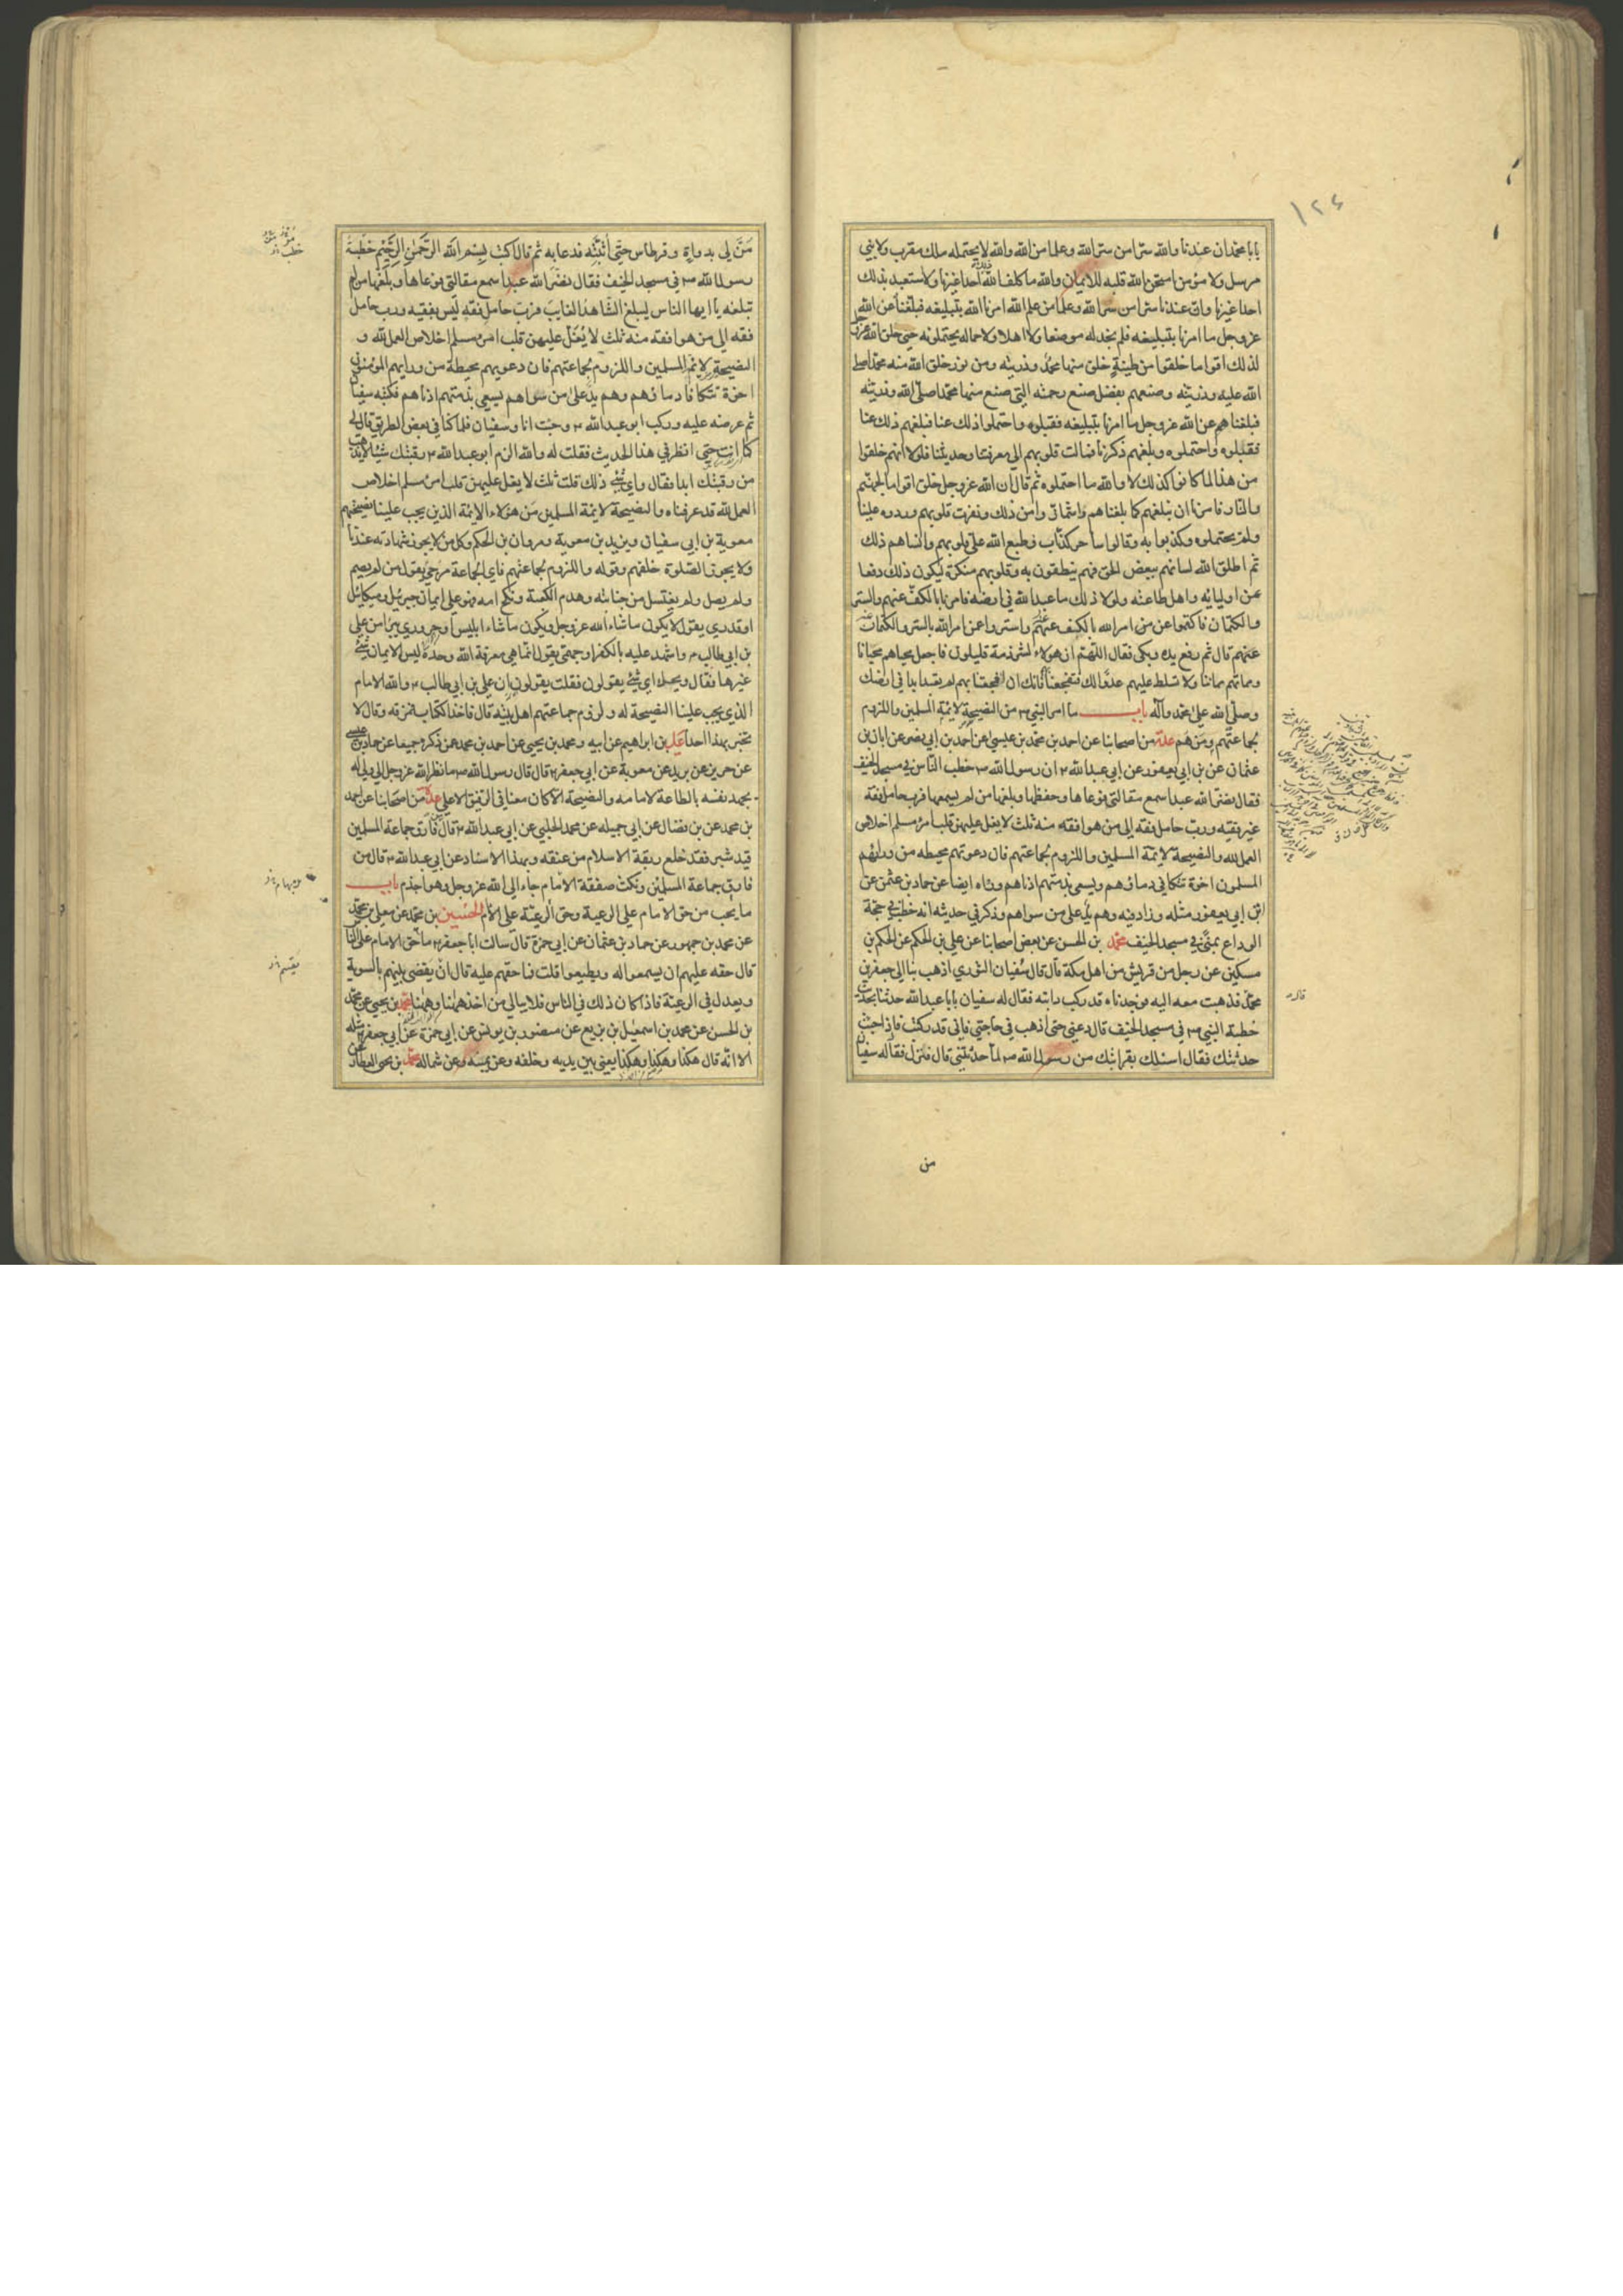 ١٢٤
يابا محمد ان عندنا والله سترا من ستر الله وعلما من الله والله لا يحتمله ملك مقرب ولا نبي
مرسل ولا مؤمن امتحن الله قلبه للايمان والله ما كلف الله ذلك احدا غيرنا ولا استعبد بذلك
احدا غيرنا وان عندنا سترا من ستر الله وعلما من علم الله امرنا الله بتبليغه فبلغنا عن الله
عز وجل ما امرنا بتبليغه فلم نجد له موضعا ولا اهلا ولا حماله يحتملونه حتى خلق الله عز وجل
لذلك اقواما خلقوا من طينة خلق منها محمد وذريته ومن نور خلق الله منه محمدا صلى
الله عليه وذريته وصنعهم بفضل صنع رحمته التي صنع منها محمدا صلى الله وذريته
فبلغناهم عن الله عز وجل ما امرنا بتبليغه فقبلوه واحتملوا ذلك عنا فبلغهم ذلك عنا
فقبلوه واحتملوه وبلغهم ذكرنا فمالت قلوبهم الى معرفتنا وحديثنا فلولا انهم خلقوا
من هذا لما كانوا كذلك لا والله ما احتملوه ثم قال ان الله عز وجل خلق اقواما لجهنم
والنار فامرنا ان نبلغهم كما بلغناهم واشمأزوا من ذلك ونفرت قلوبهم وردوه علينا
ولم يحتملوه وكذبوا به وقالوا ساحر كذاب وطبع الله على قلوبهم وانساهم ذلك
ثم اطلق الله لسانهم ببعض الحق فهم ينطقون به وقلوبهم منكرة ليكون ذلك دفعا
عن اوليائه واهل طاعته ولولا ذلك ما عبد الله في ارضه فامرنا بالكف عنهم والستر
والكتمان فاكتموا عن من امر الله بالكف عنهم واستروا عن امر الله بالستر والكتمان
عنهم قال ثم رفع يده وبكى فقال اللهم ان هؤلاء لشرذمة قليلون فاجعل محياهم محيانا
ومماتهم مماتنا ولا تسلط عليهم عدوا لك فتفجعنا فانك ان افجعتنا بهم لم تعبد ابدا في ارضك
وصلى الله على محمد وآله باب ما امر النبي ص من النصيحة لائمة المسلمين واللزوم
بجماعتهم ومن هم عدة من اصحابنا عن احمد بن محمد بن عيسى عن احمد بن ابي نصر عن ابان بن
عثمان عن بن ابي يعفور عن ابي عبد الله ع ان رسول الله ص خطب الناس في مسجد الخيف
فقال نضر الله عبدا سمع مقالتي فوعاها وحفظها وبلغها من لم يسمعها فرب حامل فقه
غير فقيه ورب حامل فقه الى من هو افقه منه ثلث لا يغل عليهن قلب امرء مسلم اخلاص
العمل لله والنصيحة لائمة المسلمين واللزوم بجماعتهم فان دعوتهم محيطه من ورائهم
المسلمون اخوة تتكافى دماؤهم ويسعى بذمتهم ادناهم ورواه ايضا عن حماد بن عثمن عن
ابن ابي يعفور مثله وزاد فيه وهم يد على من سواهم وذكر في حديثه انه خطب في حجة
الوداع بمنى في مسجد الخيف محمد بن الحسن عن بعض اصحابنا عن علي بن الحكم عن الحكم بن
مسكين عن رجل من قريش من اهل مكة قال قال سفيان الثوري اذهب بنا الى جعفر بن
محمد فذهبت معه اليه فوجدناه قد ركب دابته فقال له سفيان يابا عبد الله حدثنا بحديث
خطبة النبي ص في مسجد الخيف قال دعني حتى اذهب في حاجتي فاني قد ركبت فاذا جئت
حدثتك فقال اسئلك بقرابتك من رسول الله ص لما حدثتني قال فنزل فقال له سفيان
من
مر لي بدواة وقرطاس حتى اثبته فدعا به ثم قال اكتب بسم الله الرحمن الرحيم خطبة
رسول الله ص في مسجد الخيف فقال نضر الله عبدا سمع مقالتي فوعاها وبلغها من لم
تبلغه يا ايها الناس ليبلغ الشاهد الغايب فرب حامل فقه ليس بفقيه ورب حامل
فقه الى من هو افقه منه ثلث لا يغل عليهن قلب امرء مسلم اخلاص العمل لله و
النصيحة لائمة المسلمين واللزوم بجماعتهم فان دعوتهم محيطة من ورايهم المؤمنون
اخوة تتكافا دماؤهم وهم يد على من سواهم يسعى بذمتهم ادناهم فكتبه سفيان
ثم عرضه عليه وركب ابو عبد الله ع وجئت انا وسفيان فلما كنا في بعض الطريق قال لي
كما انت حتى انظر في هذا الحديث فقلت له والله الزم ابو عبد الله ع رقبتك شيئا لا يذهب
من رقبتك ابدا فقال واي شئ ذلك قلت ثلث لا يغل عليهن قلب امرء مسلم اخلاص
العمل لله قد عرفناه والنصيحة لائمة المسلمين من هؤلاء الائمة الذين يجب علينا نصيحتهم
معوية بن ابي سفيان ويزيد بن معوية ومروان بن الحكم وكل من لا يجوز شهادته عندنا
ولا يجوز الصلوة خلفهم وقوله واللزوم بجماعتهم فاي الجماعة مرجئ يقول من لم يصم
ولم يصل ولم يغتسل من جنابته وهدم الكعبة ونكح امه فهو على ايمان جبرئيل وميكائيل
او قدري يقول لا يكون ما شاء الله عز وجل ويكون ما شاء ابليس او حروري يبرا من علي
بن ابي طالب ع واشهد عليه بالكفر او جهمي يقول انما هي معرفة الله وحده ليس الايمان شئ
غيرها فقال ويحك اي شئ يقولون فقلت يقولون ان علي بن ابي طالب ع والله الامام
الذي يجب علينا النصيحة له ولزوم جماعتهم اهل بيته قال فاخذ الكتاب فخرقه وقال لا
تخبر بهذا احدا علي بن ابراهيم عن ابيه ومحمد بن يحيى عن احمد بن محمد عن ذكره جميعا عن حماد بن عيسى
عن حريز عن بريد عن معوية عن ابي جعفر ع قال قال رسول الله ص ما نظر الله عز وجل الى ولي له
يجهد نفسه بالطاعة لامامه والنصيحة الا كان معنا في الرفيق الاعلى عدة من اصحابنا عن احمد
بن محمد عن بن فضال عن ابي جميله عن محمد الحلبي عن ابي عبد الله ع قال من فارق جماعة المسلمين
قيد شبر فقد خلع ربقة الاسلام من عنقه وبهذا الاسناد عن ابي عبد الله ع قال من
فارق جماعة المسلمين ونكث صفقة الامام جاء الى الله عز وجل وهو اجذم باب
ما يجب من حق الامام على الرعية وحق الرعية على الامام الحسين بن محمد عن معلى بن محمد
عن محمد بن جمهور عن حماد بن عثمان عن ابي حمزة قال سالت ابا جعفر ع ما حق الامام على الناس
قال حقه عليهم ان يسمعوا له ويطيعوا قلت فما حقهم عليه قال ان يقضى بينهم بالسوية
ويعدل في الرعية فاذا كان ذلك في الناس فلا يبالي من اخذ ههنا وههنا محمد بن يحيى عن محمد
بن الحسن عن محمد بن اسمعيل بن بزيع عن منصور بن يونس عن ابي حمزة عن ابي جعفر ع مثله
الا انه قال هكذا وهكذا وهكذا يعني بين يديه وخلفه وعن يمينه وعن شماله محمد بن يحيى العطار